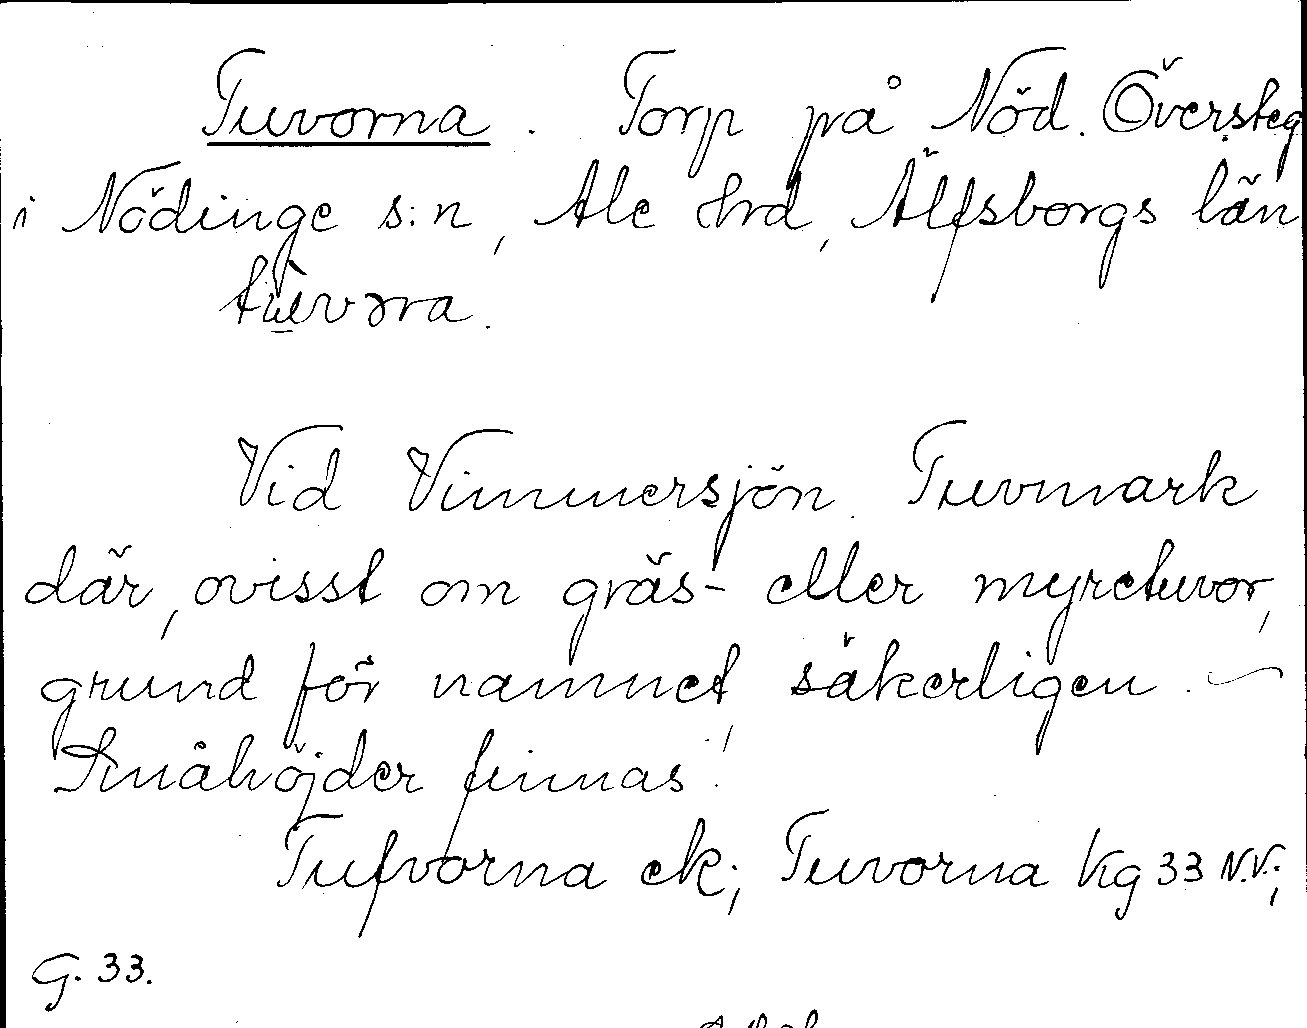 Tuvorna. Torp på Nöd. Översteg
i Nödinge s:n, Ale hrd, Älfsborgs län
Vid Vimmersjön. Tuvmark
där, ovisst om gräs- eller myretuvor,
grund för namnet, säkerligen. —
Småhöjder finnas.
Tufvorna ek; Tuvorna Kg 33 N.V.;
G. 33.